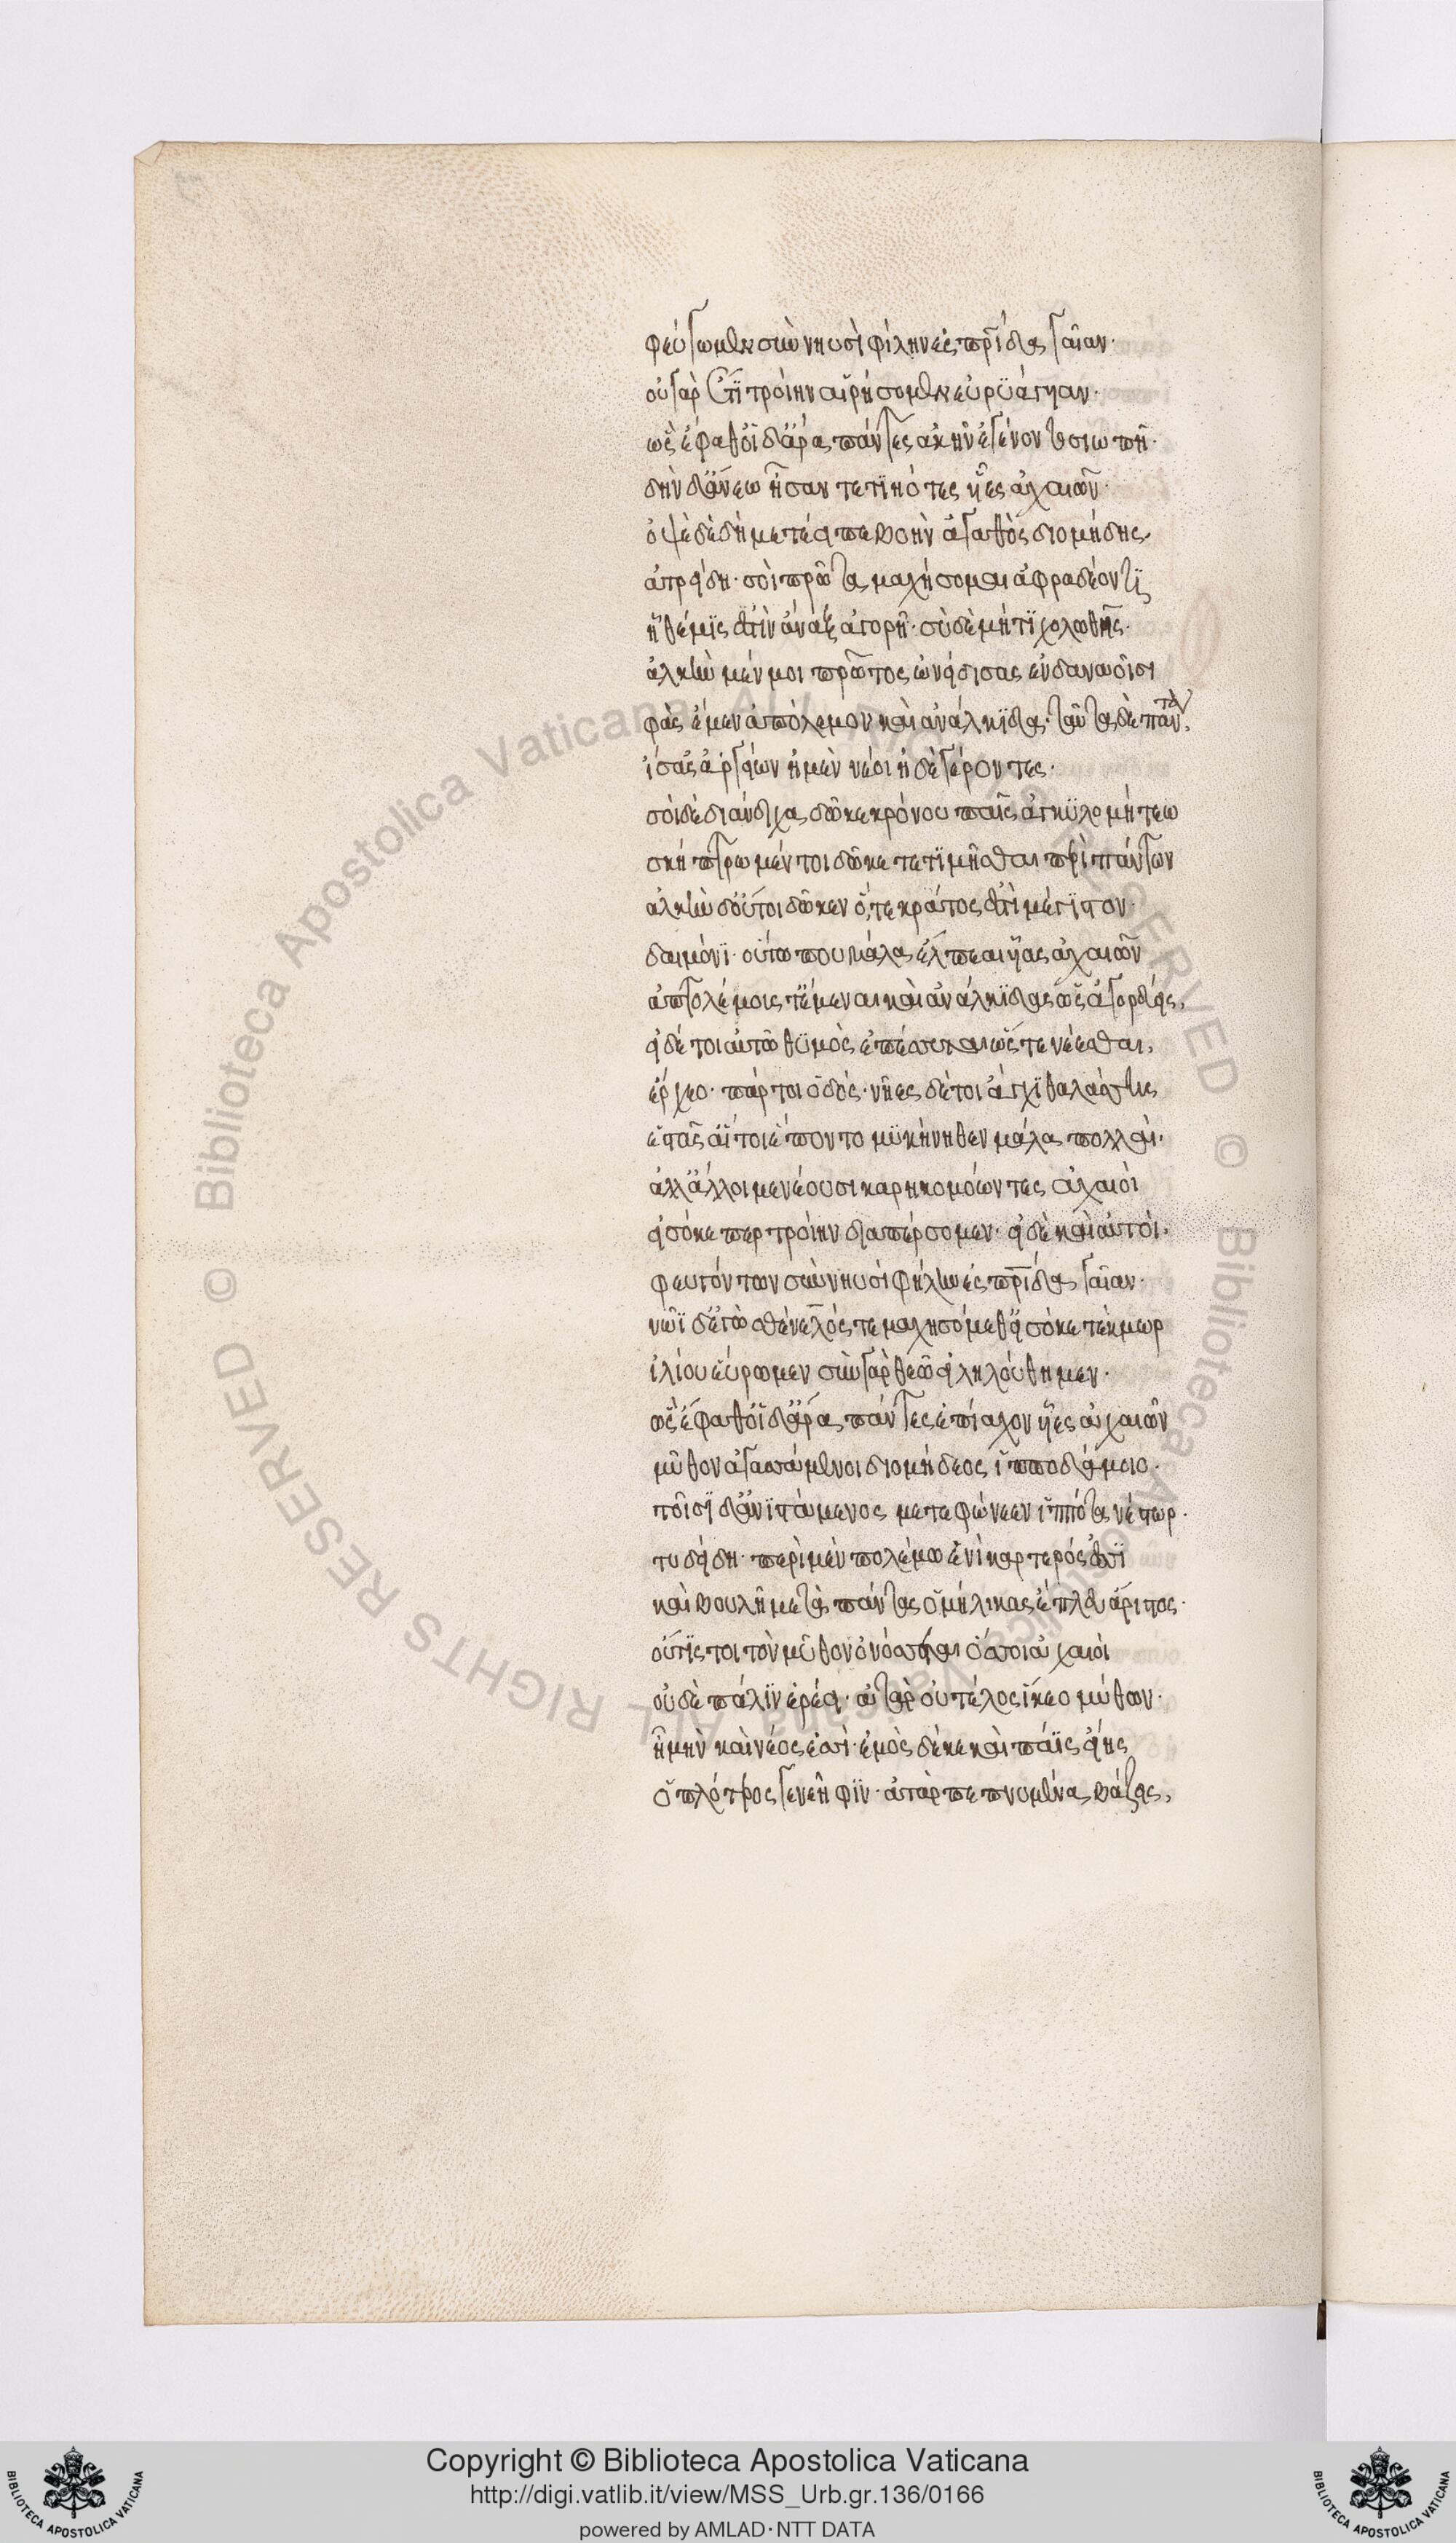 φεύγωμεν σὺν νηυσὶ φίλην ἐς πρίδα γαῖαν·
οὐ γὰρ ἔτι τροίην αἱρήσομεν εὐρυάγυιαν·
ὣς ἔφαθ' οἱ δ' ἄρα πάντες ἀκὴν ἐγένοντο σιωπῇ·
δὴν δ' ἄνεω ἦσαν τετιηότες υἷες ἀχαιῶν·
ὀψὲ δὲ δὴ μετέειπε βοὴν ἀγαθὸς διομήδης,
ἀτρείδη· σοὶ πρῶτα μαχήσομαι ἀφραδέοντι
ἣ θέμις ἐστὶν ἄναξ ἀγορῇ· σὺ δὲ μή τι χολωθῇς·
ἀλκὴν μέν μοι πρῶτος ὠνείδισας ἐν δαναοῖσι
φὰς ἔμεν ἀπόλεμον καὶ ἀνάλκιδα· ταῦτα δὲ πάντα,
ἴσασ' ἀργείων ἠμὲν νέοι ἠδὲ γέροντες·
σοὶ δὲ διάνδιχα δῶκε κρόνου παῖς ἀγκυλομήτεω
σκήπτρω μέν τοι δῶκε τετιμῆσθαι περὶ πάντων
ἀλκὴν δ' οὔτοι δῶκεν ὅ,τε κράτος ἐστὶ μέγιστον·
δαιμόνι· οὕτω που μάλα ἔλπεαι υἷας ἀχαιῶν
ἀπτολέμους τ' ἔμεναι καὶ ἀνάλκιδας ὡς ἀγορεύεις,
εἰ δέ τοι αὐτῶ θυμὸς ἐπέσσυται ὥς τε νέεσθαι,
ἔρχεο· πάρ τοι ὁδός· νῆες δέ τοι ἄγχι θαλάσσης
ἑστᾶσ' αἵ τοι ἕποντο μυκήνηθεν μάλα πολλαί·
ἀλλ' ἄλλοι μενέουσι καρηκομόωντες ἀχαιοὶ
εἰσόκε περ τροίην διαπέρσομεν· εἰ δὲ καὶ αὐτοὶ,
φευγόντων σὺν νηυσὶ φίλην ἐς πρίδα γαῖαν·
νῶϊ δ' ἐγὼ σθένελός τε μαχησόμεθ' εἰσόκε τέκμωρ
ἰλίου εὕρωμεν σὺν γὰρ θεῶ εἰληλούθημεν·
ὣς ἔφαθ' οἱ δ' ἄρα πάντες ἐπίαχον υἷες ἀχαιῶν
μῦθον ἀγασσάμενοι διομήδεος ἱπποδάμοιο·
τοῖσι δ' ἀνιστάμενος μετεφώνεεν ἱππότα νέστωρ·
τυδείδη· περὶ μὲν πολέμω ἔνι καρτερός ἐσσι
καὶ βουλῇ μετὰ πάντας ὁμήλικας ἔπλευ ἄριστος·
οὔτίς τοι τὸν μῦθον ὀνόσσεται ὅσσοι ἀχαιοὶ
οὐδὲ πάλιν ἐρέει· ἀτὰρ οὐ τέλος ἵκεο μύθων·
ἦ μὴν καὶ νέος ἐσσὶ· ἐμὸς δέ κε καὶ πάϊς εἴης
ὁπλότερος γενεῆφιν· ἀτὰρ πεπνυμένα βάζεις,
Copyright © Biblioteca Apostolica Vaticana
http://digi.vatlib.it/view/MSS_Urb.gr.136/0166
powered by AMLAD·NTT DATA